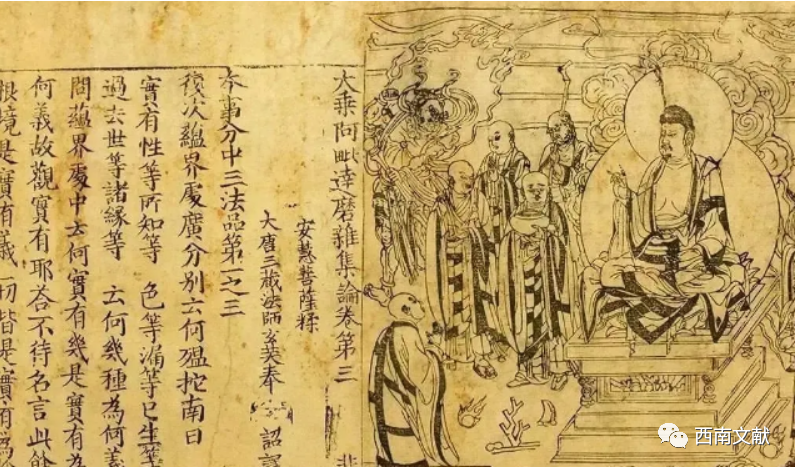 大乗阿毗達磨雜集論卷第三
安慧菩薩糅
大唐三藏法師玄奘奉 詔譯
本事分中三法品第一之三
復次蘊界處廣分別云何嗢拕南曰
實有性等所知等 色等漏等已生等
過去世等諸緣等 云何幾種為何義
問蘊界處中云何實有幾是實有為
何義故觀實有耶荅不待名言此餘
根境是實有義一切皆是實有為
西南文献